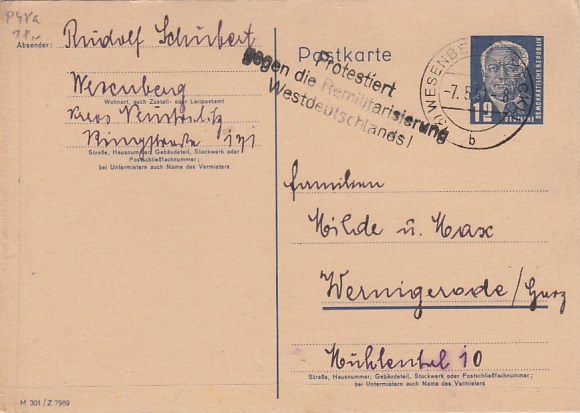 P48a
18,-
Absender: Rudolf Schubert
Wesenberg
Wohnort, auch Zustell- oder Leitpostamt
Kreis Neustrelitz
Ringstraße 171
Straße, Hausnummer, Gebäudeteil, Stockwerk oder
Postschließfachnummer;
bei Untermietern auch Name des Vermieters
M 301 / Z 7989
Postkarte
Protestiert
gegen die Remilitarisierung
Westdeutschlands!
WESENBERG
-7.5.
b
12
DEUTSCHE
DEMOKRATISCHE REPUBLIK
Familien
Hilde u. Max
Wernigerode/Harz
Mühlental 10
Straße, Hausnummer, Gebäudeteil, Stockwerk oder Postschließfachnummer;
bei Untermietern auch Name des Vermieters